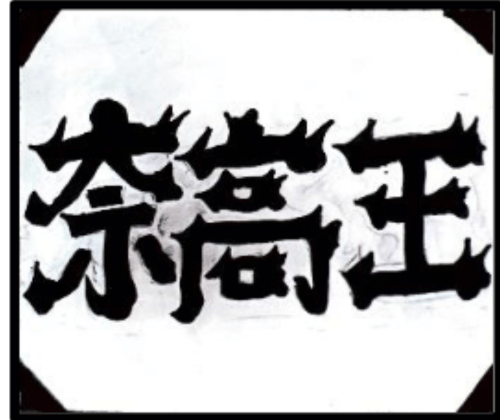 奈高王